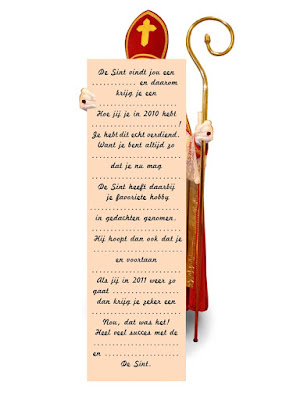 De Sint vindt jou een
............ en daarom
krijg je een
........................
Hoe jij je in 2010 hebt
.......................!
Je hebt dit echt verdiend.
Want je bent altijd zo
........................
dat je nu mag
........................
De Sint heeft daarbij
je favoriete hobby
........................
in gedachten genomen.
........................
Hij hoopt dan ook dat je
........................
en voortaan
........................
Als jij in 2011 weer zo
gaat ...................
dan krijg je zeker een
........................
Nou, dat was het!
Heel veel succes met de
........................
en .....................
De Sint.